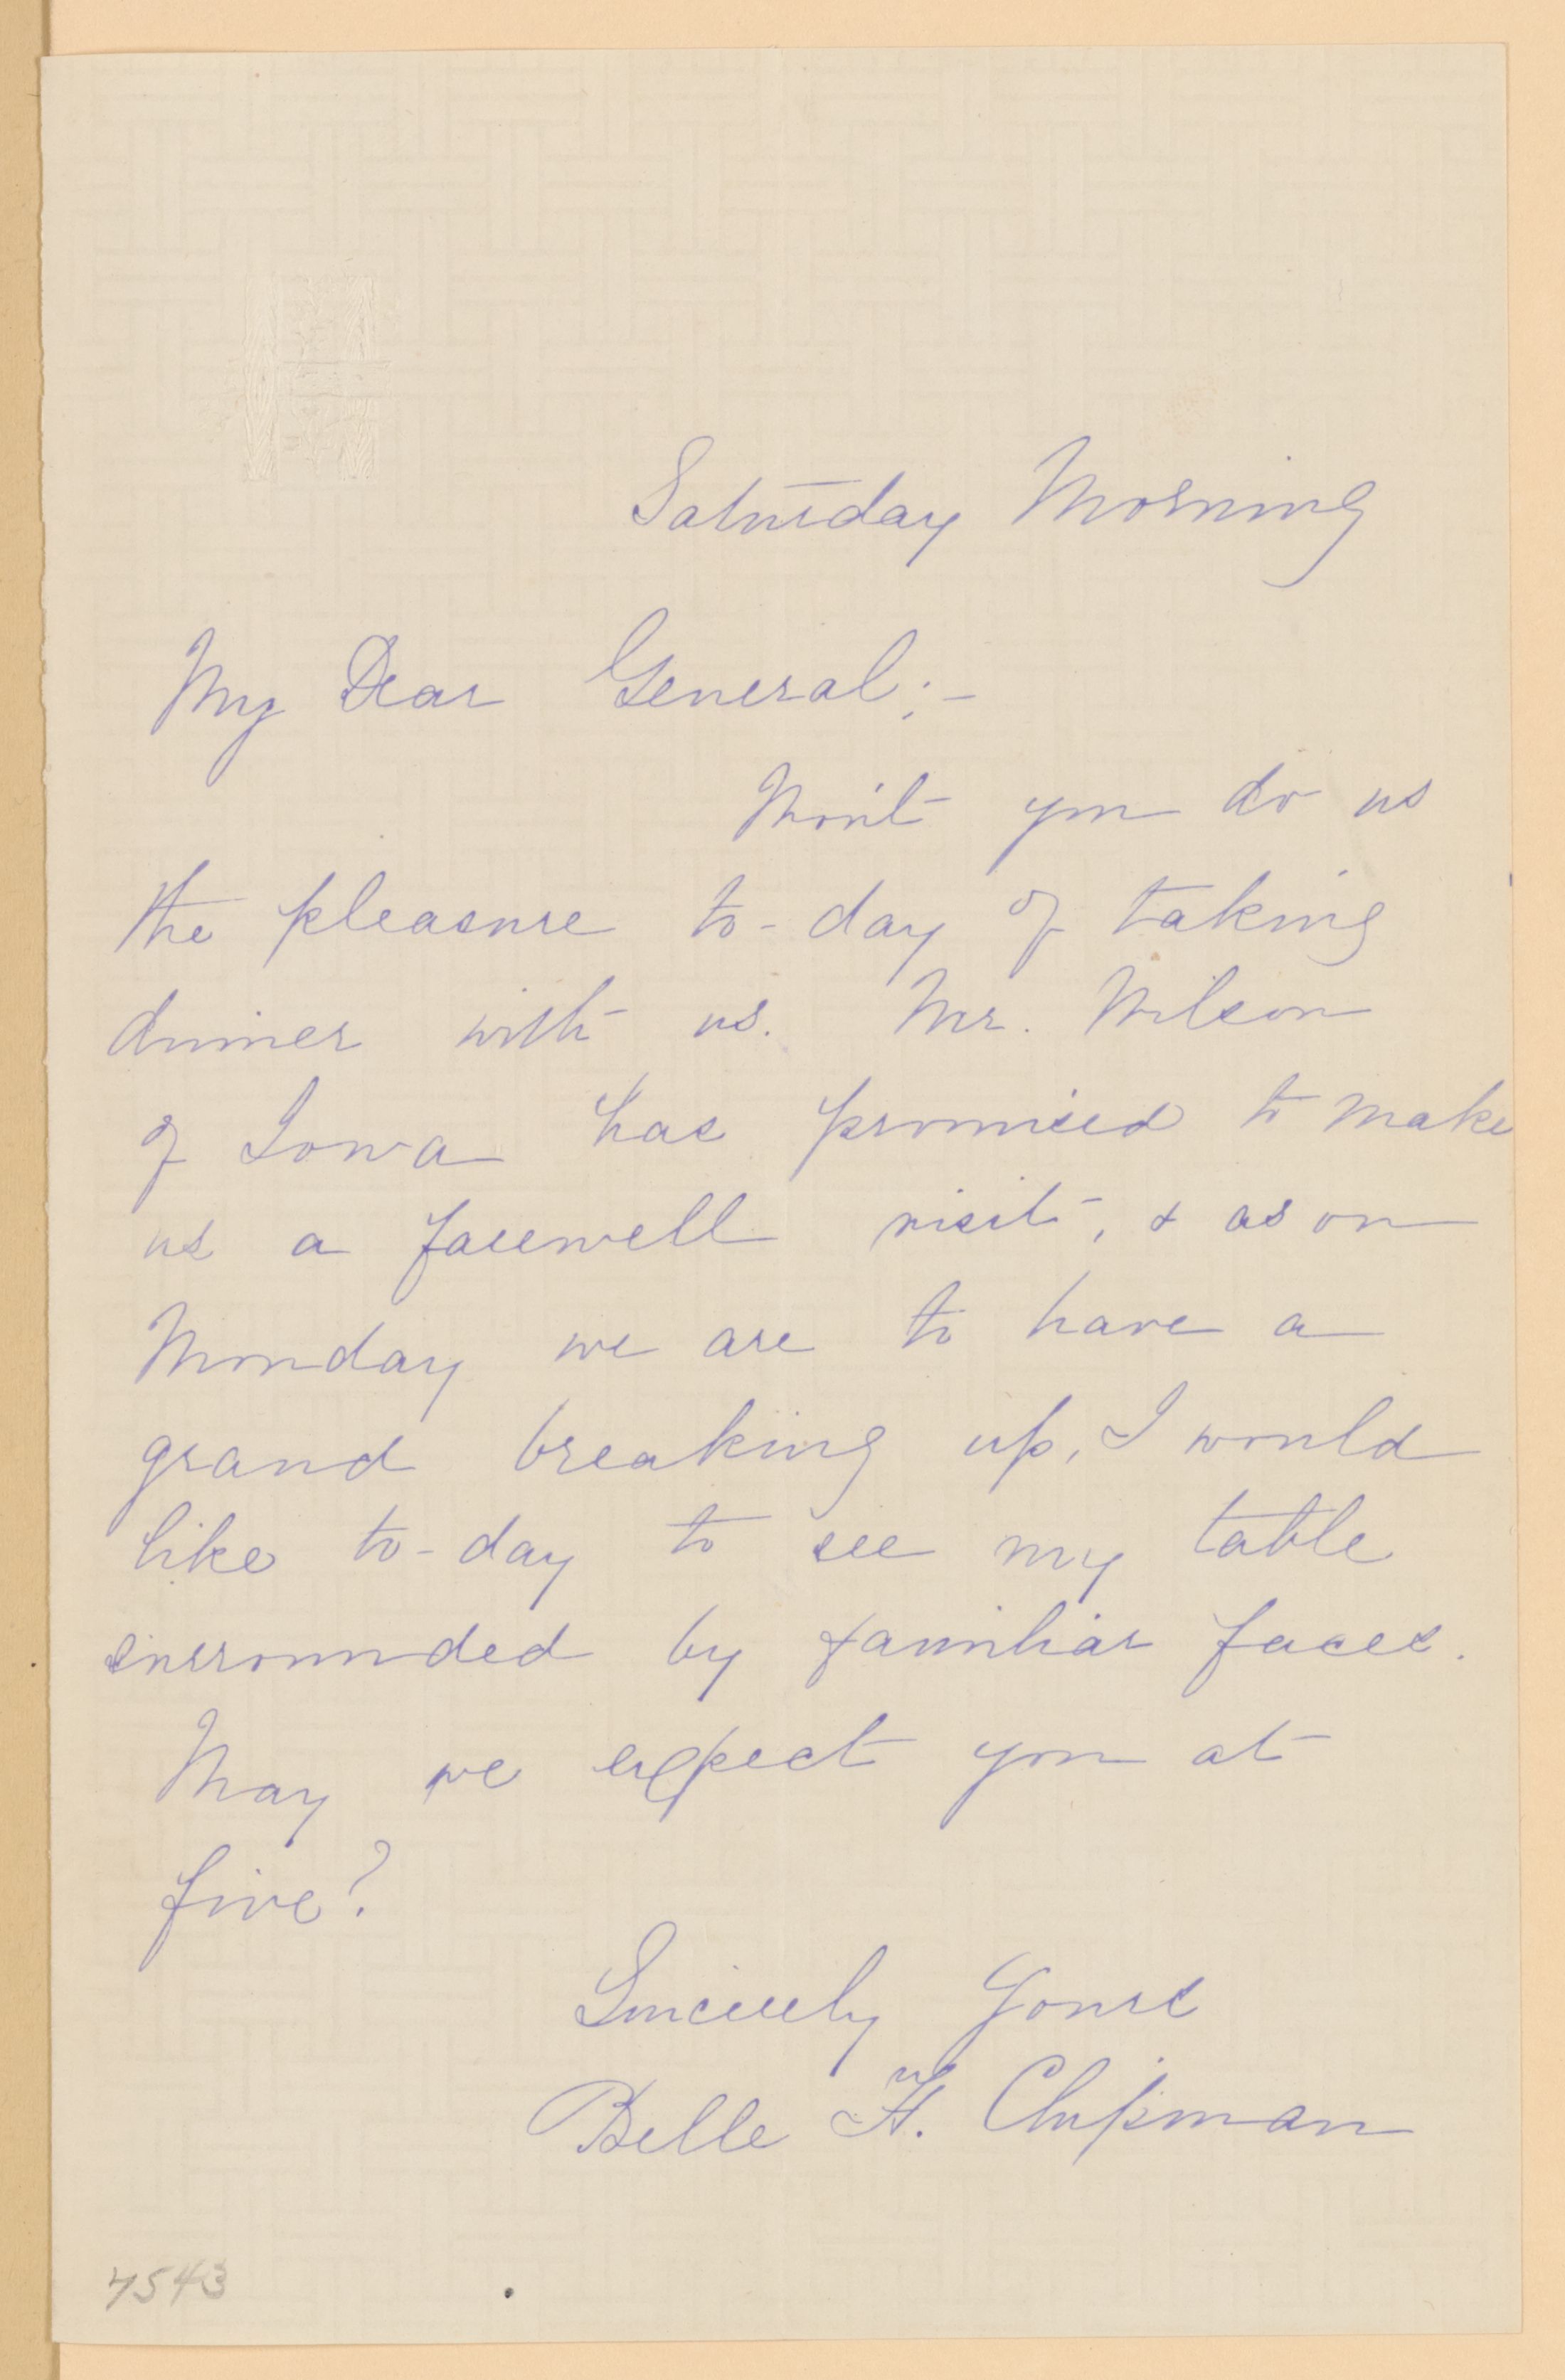 Saturday Morning
My Dear General:-
Won't you do us
the pleasure to-day of taking
dinner with us. Mr. Wilson
of Iowa has promised to make
us a farewell visit, & as on
Monday we are to have a
grand breaking up, I would
like to-day to see my table
surrounded by familiar faces.
May we expect you at
five?
Sincerely Yours
Belle H. Chipman
7543